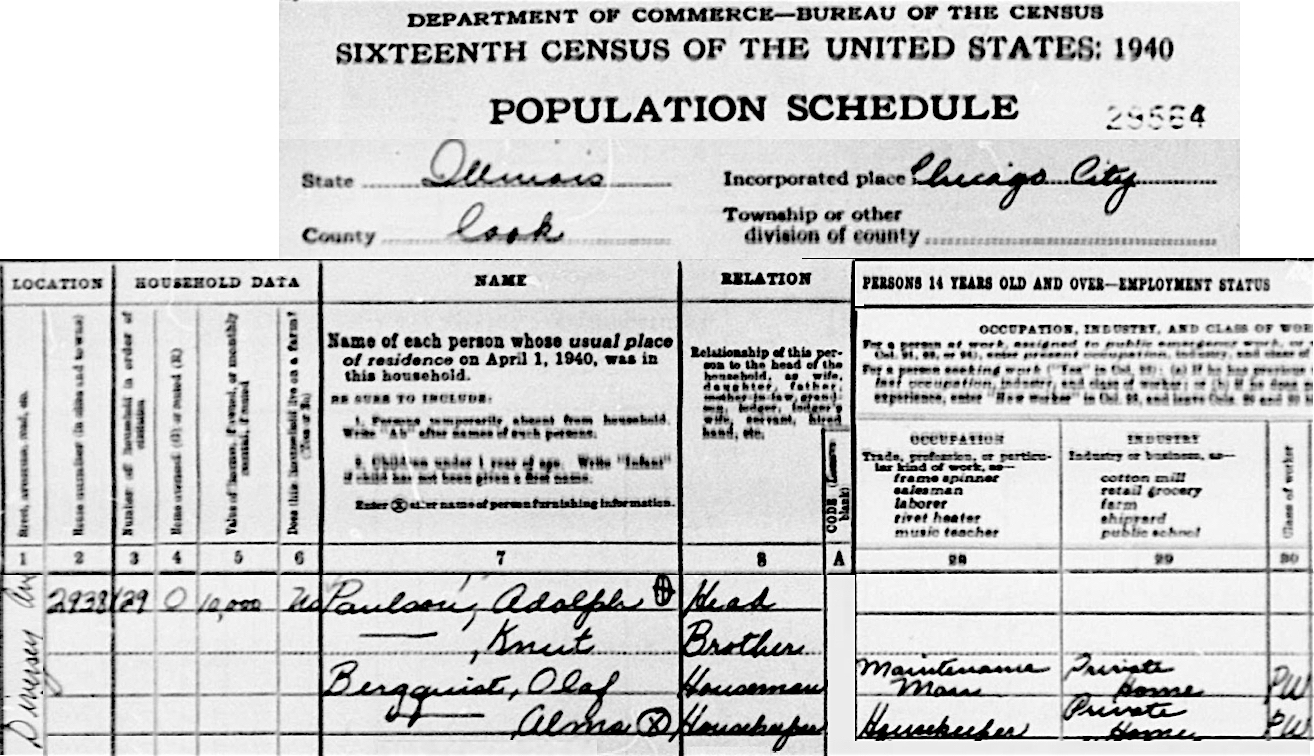 DEPARTMENT OF COMMERCE—BUREAU OF THE CENSUS
SIXTEENTH CENSUS OF THE UNITED STATES: 1940
POPULATION SCHEDULE
29564
State Illinois
Incorporated place Chicago City
County Cook
Township or other
division of county
LOCATION
HOUSEHOLD DATA
NAME
RELATION
PERSONS 14 YEARS OLD AND OVER—EMPLOYMENT STATUS
Street, avenue, road, etc.
House number (in cities and towns)
Number of household in order of
visitation
Home owned (O) or rented (R)
Value of home, if owned, or monthly
rental, if rented
Does this household live on a farm?
(Yes or No)
Name of each person whose usual place
of residence on April 1, 1940, was in
this household.
BE SURE TO INCLUDE:
1. Persons temporarily absent from household.
Write "Ab" after names of such persons.
2. Children under 1 year of age. Write "Infant"
if child has not been given a first name.
Enter ⓧ after name of person furnishing information.
Relationship of this per-
son to the head of the
household, as wife,
daughter, father,
mother-in-law, grand-
son, lodger, lodger's
wife, servant, hired
hand, etc.
CODE (Leave
blank)
OCCUPATION, INDUSTRY, AND CLASS OF WOR
For a person at work, assigned to public emergency work, or
Col. 21, 22, or 24), enter present occupation, industry, and class of
For a person seeking work ("Yes" in Col. 23): (a) If he has previous
last occupation, industry, and class of worker; or (b) if he does
experience, enter "New worker" in Col. 28, and leave Cols. 29 and 30
OCCUPATION
Trade, profession, or particu-
lar kind of work, as—
frame spinner
salesman
laborer
rivet heater
music teacher
INDUSTRY
Industry or business, as—
cotton mill
retail grocery
farm
shipyard
public school
Class of worker
1 2 3 4 5 6 7 8 A 28 29 30
Diversey Av
2938 129 O 10,000 No Paulson, Adolph ⓧ Head
—, Knut Brother
Bergquist, Olaf Houseman Maintenance Man Private Home PW
— Alma ⓧ Housekeeper Housekeeper Private Home PW